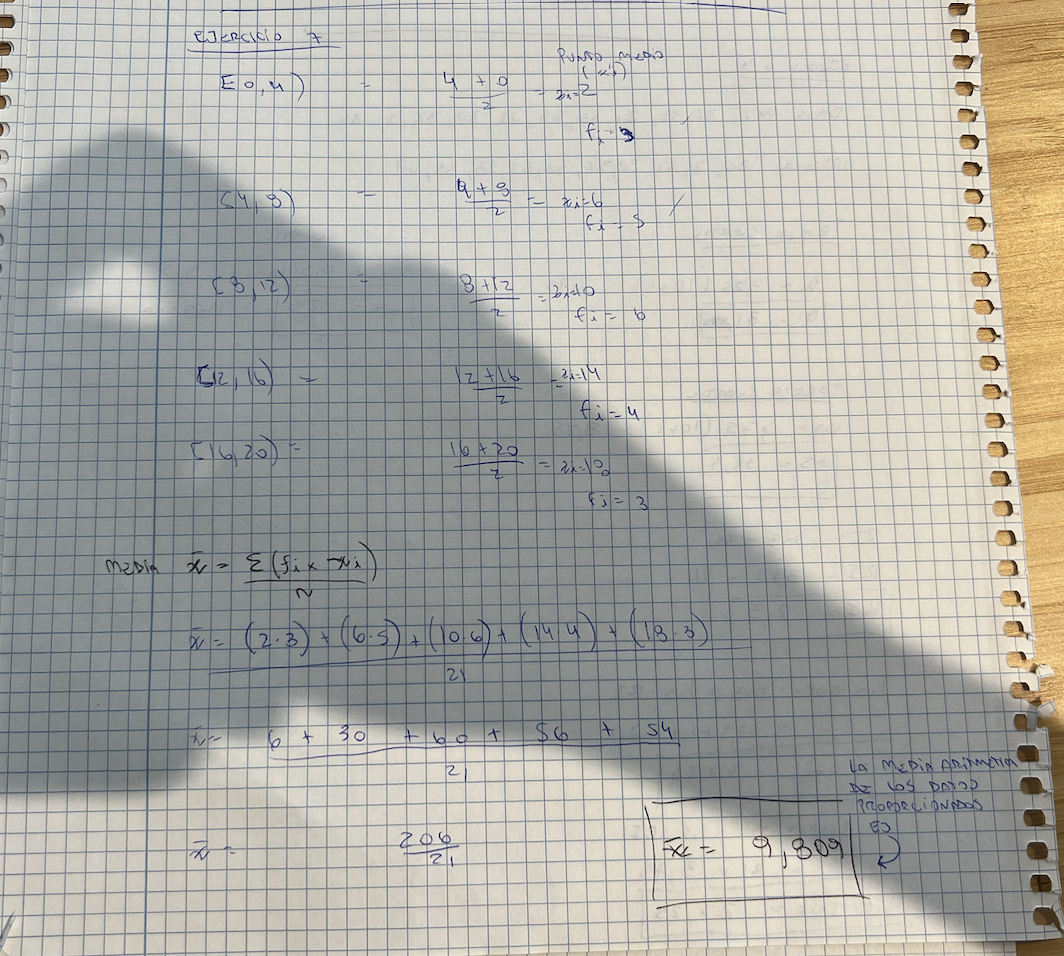 EJERCICIO 7
PUNTO MEDIO
(xi)
[0,4) = 4 + 0 / 2 = xi=2
fi = 3
[4,8) = 4 + 8 / 2 = xi=6
fi = 5
[8,12) = 8 + 12 / 2 = xi=10
fi = 6
[12, 16) = 12 + 16 / 2 = xi=14
fi = 4
[16,20) = 16 + 20 / 2 = xi=18
fi = 3
MEDIA x̄ = Σ(fi x xi) / N
x̄ = (2·3) + (6·5) + (10·6) + (14·4) + (18·3) / 21
x̄ = 6 + 30 + 60 + 56 + 54 / 21
LA MEDIA ARITMETICA
DE LOS DATOS
PROPORCIONADOS
ES
x̄ = 206 / 21
x̄ = 9,809